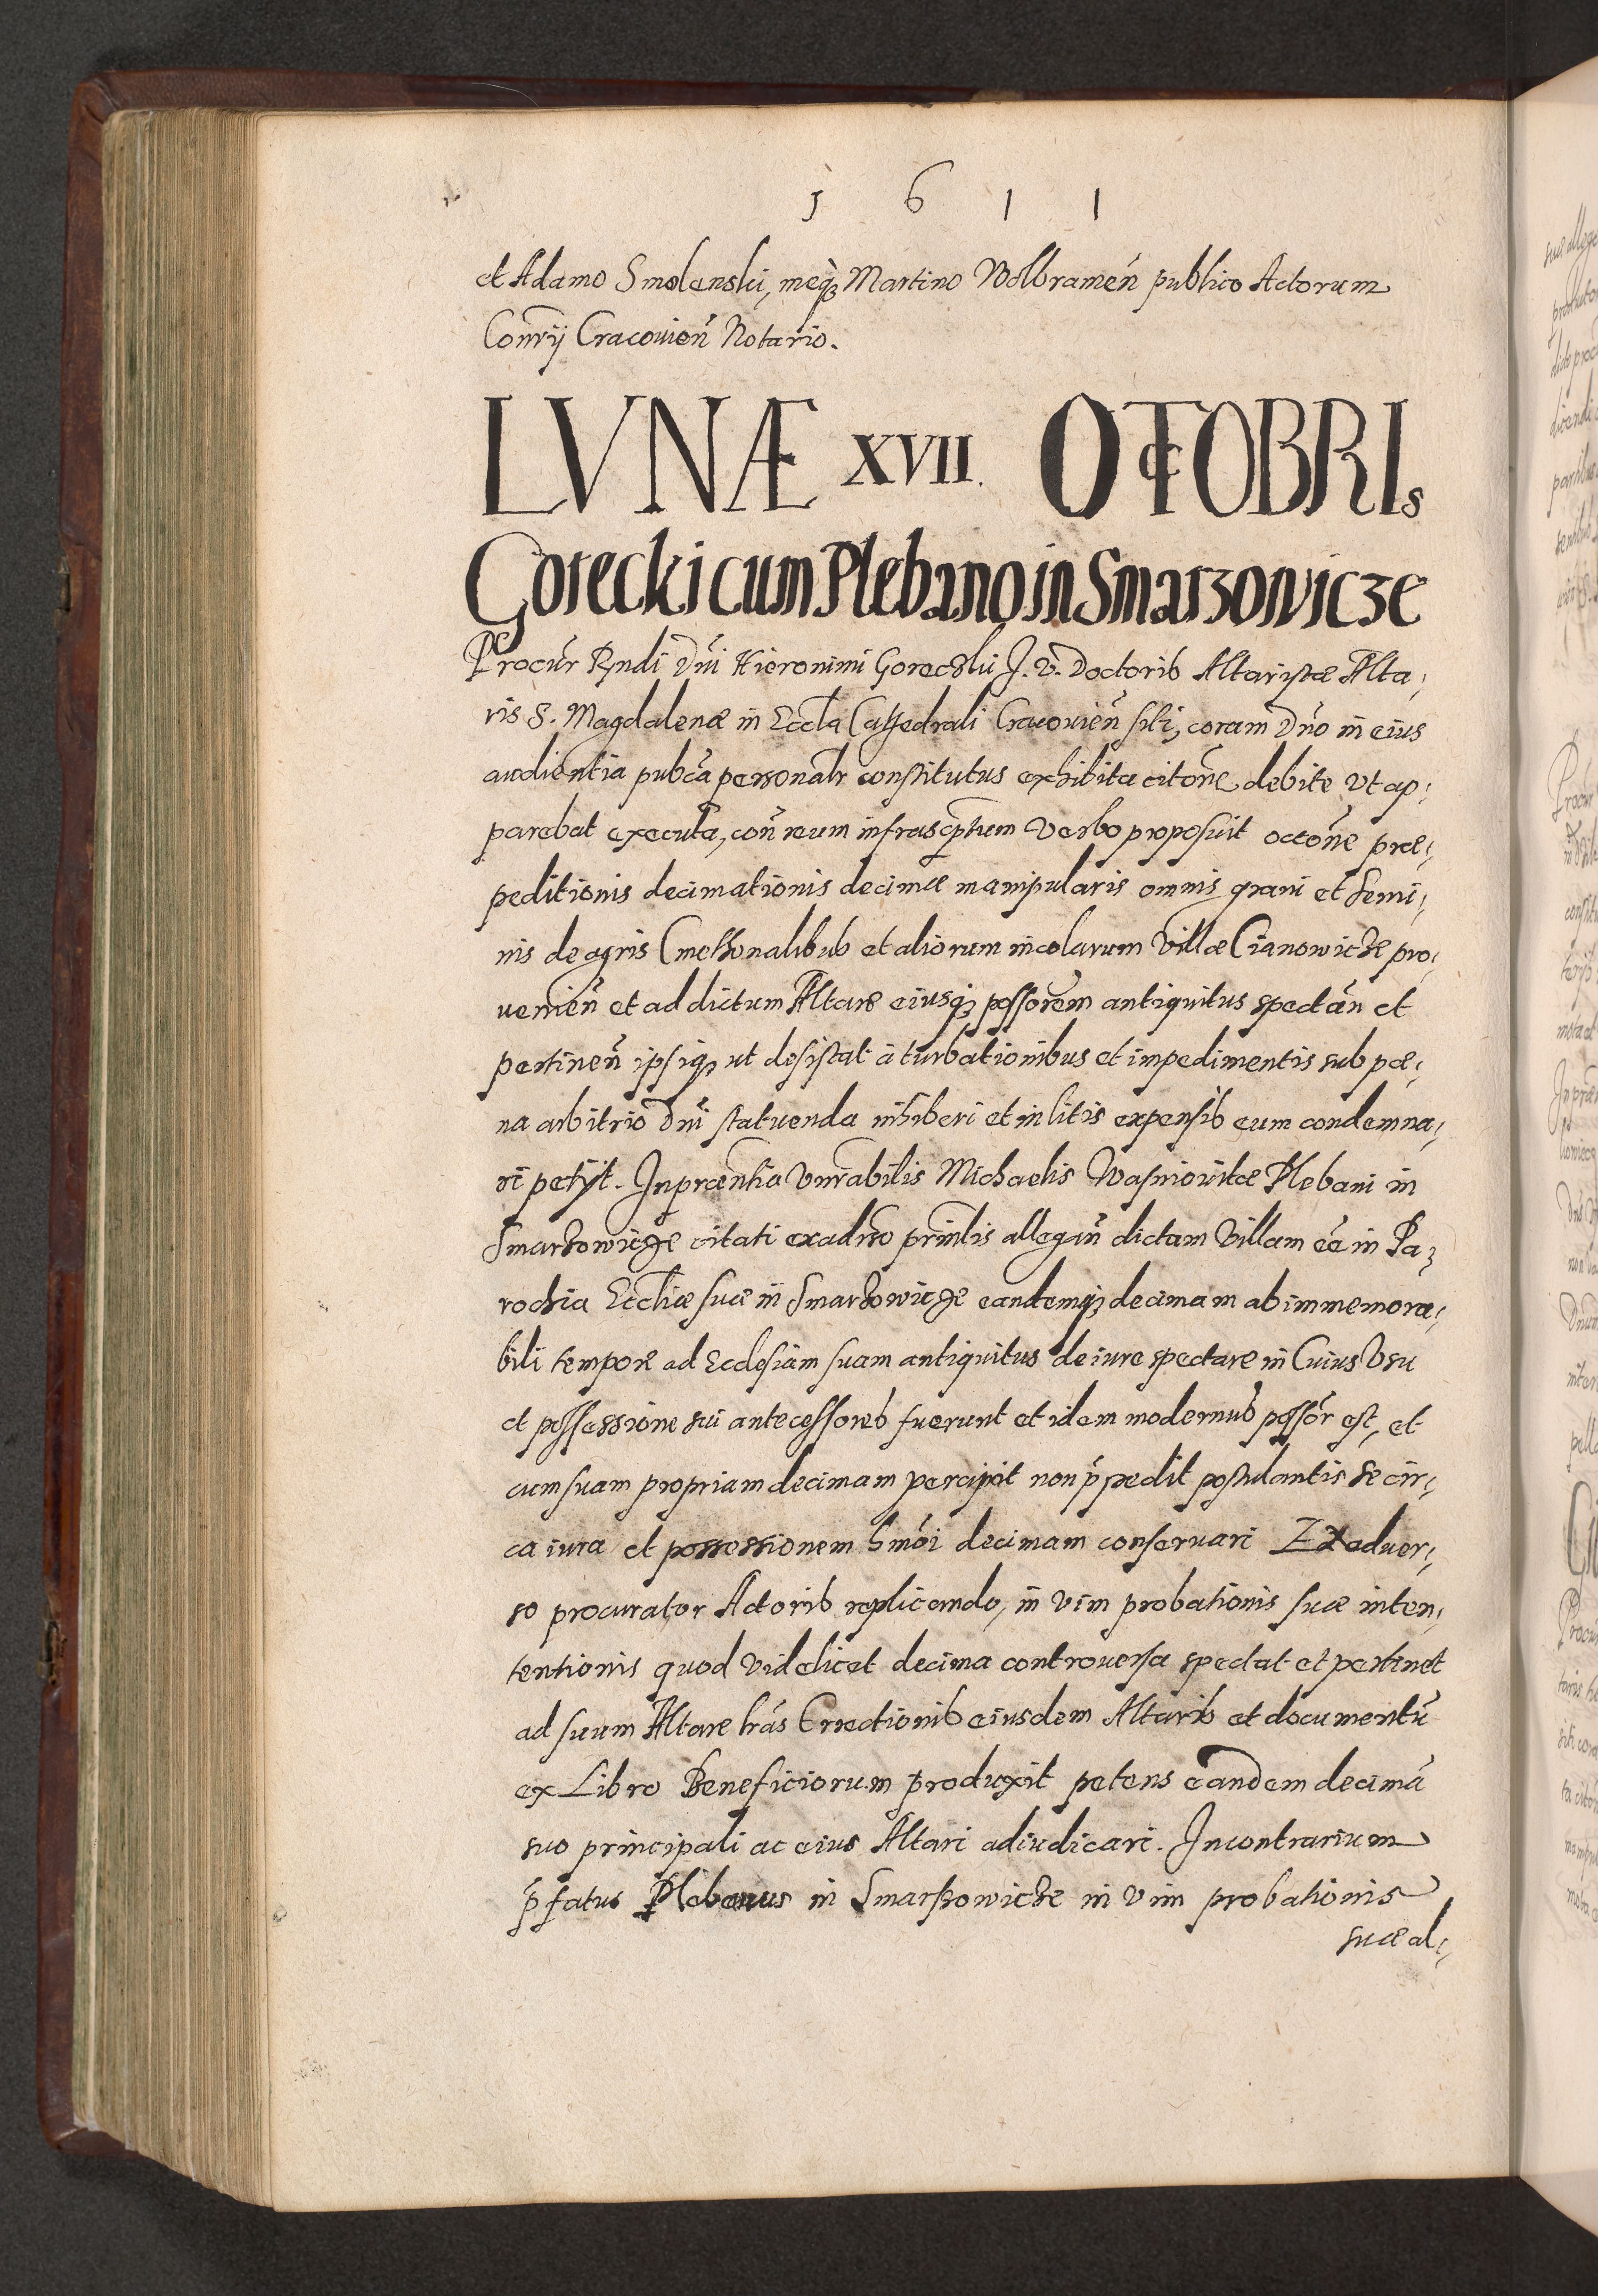 1 6 1 1
et Adamo Smolenski, meq̃ Martino Wolbramen̄ publico Actorum
Conrÿ Cracouien̄ Notario.
LVNÆ XVII. OCTOBRIs
Gorecki cum Plebano in Smarzowicze
Procur̄ Rndi Dn̄i Hieronimi Goreczki J. V. Doctoris Altaristæ Alta,
ris S. Magdalenæ in Eccl̄a Cathedrali Cracouien̄ siti, coram Dn̄o in eius
audientia pubc̄a personalr̄ constitutus exhibita citon̄e debite vt ap,
parebat executa, con̄ reum infrascp̄tum verbo proposuit occōne præ,
peditionis decimationis decimæ manipularis omnis grani et semi,
nis de agris Cmethonalibus et aliorum incolarum Villæ Cianowicze pro,
uenien̄ et ad dictum Altare eiusq̃ possorem̄ antiquitus spectan̄ et
pertinen̄ ipsiq̃ ut desistat à turbationibus et impedimentis sub pœ,
na arbitrio Dn̄i statuenda inhiberi et in litis expensis eum condemna,
ri petÿt. In præn̄tia Vnr̄abilis Michaelis Wasniowitæ Plebani in
Smarzowicze citati exadr̄so prin̄lis allegan̄ dictam Villam eē in Pa,
rochia Eccl̄iæ suæ in Smarzowicze eandemq̃ decimam ab immemora,
bili tempore ad Ecclesiam suam antiquitus de iure spectare in Cuius Vsu
et possessione sui antecessores fuerunt et idem modernus possōr est, et
cum suam propriam decimam percipit non p̄pedit postulantis se cir,
ca iura et possessionem hmōi decimam conseruari Ex aduer,
so procurator Actoris replicando, in vim probationis suæ inten,
tentionis quod videlicet decima controuersa spectat et pertinet
ad suum Altare lr̄as Erectionis eiusdem Altaris et documentū
ex Libro Beneficiorum produxit petens eandem decimā
suo principali ac eius Altari adiudicari. In contrarium
p̄fatus Plebanus in Smarzowicze in vim probationis
suæ al,